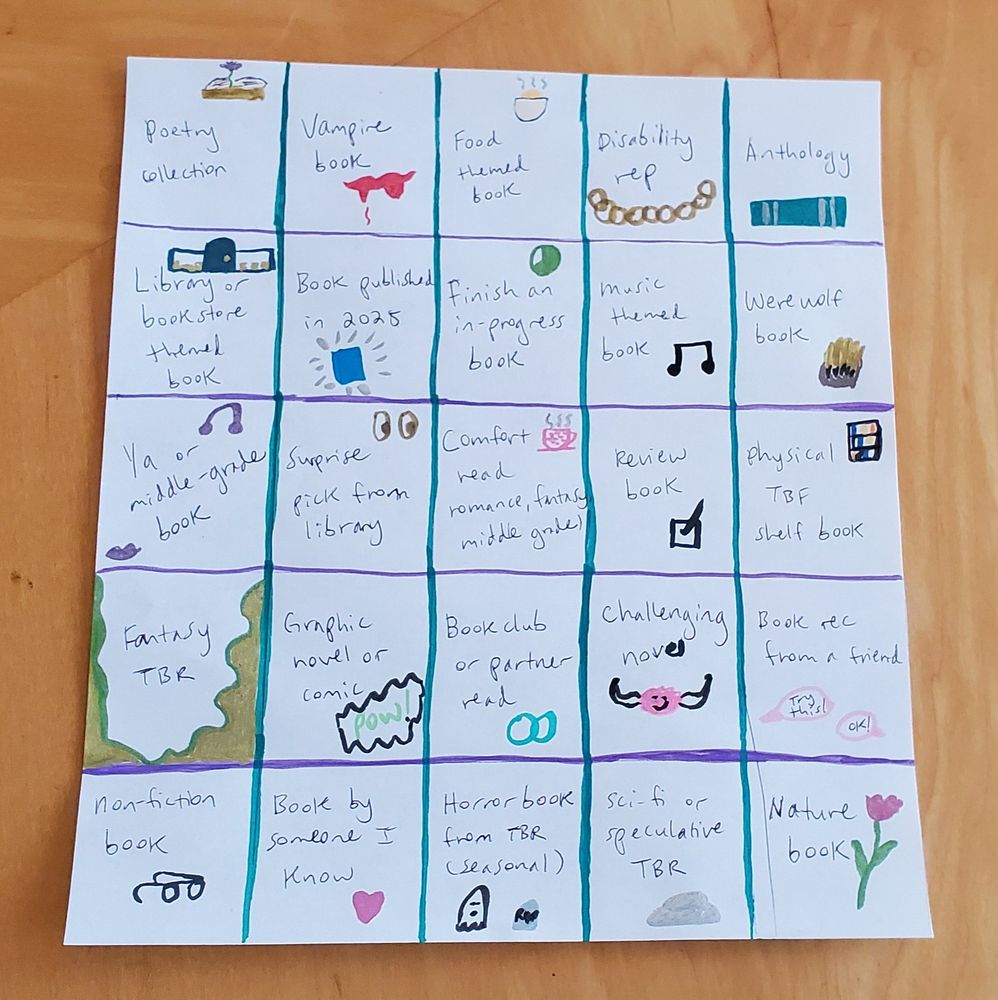 Poetry
collection
Vampire
book
Food
themed
book
Disability
rep
Anthology
Library or
bookstore
themed
book
Book published
in 2025
Finish an
in-progress
book
music
themed
book
Werewolf
book
Ya or
middle-grade
book
Surprise
pick from
library
Comfort
read
romance, fantasy
middle grade)
Review
book
physical
TBF
shelf book
Fantasy
TBR
Graphic
novel or
comic
pow!
Book club
or partner
read
Challenging
novel
Book rec
from a friend
Try
this!
OK!
non-fiction
book
Book by
someone I
know
Horror book
from TBR
(seasonal)
RIP
sci-fi or
speculative
TBR
Nature
book